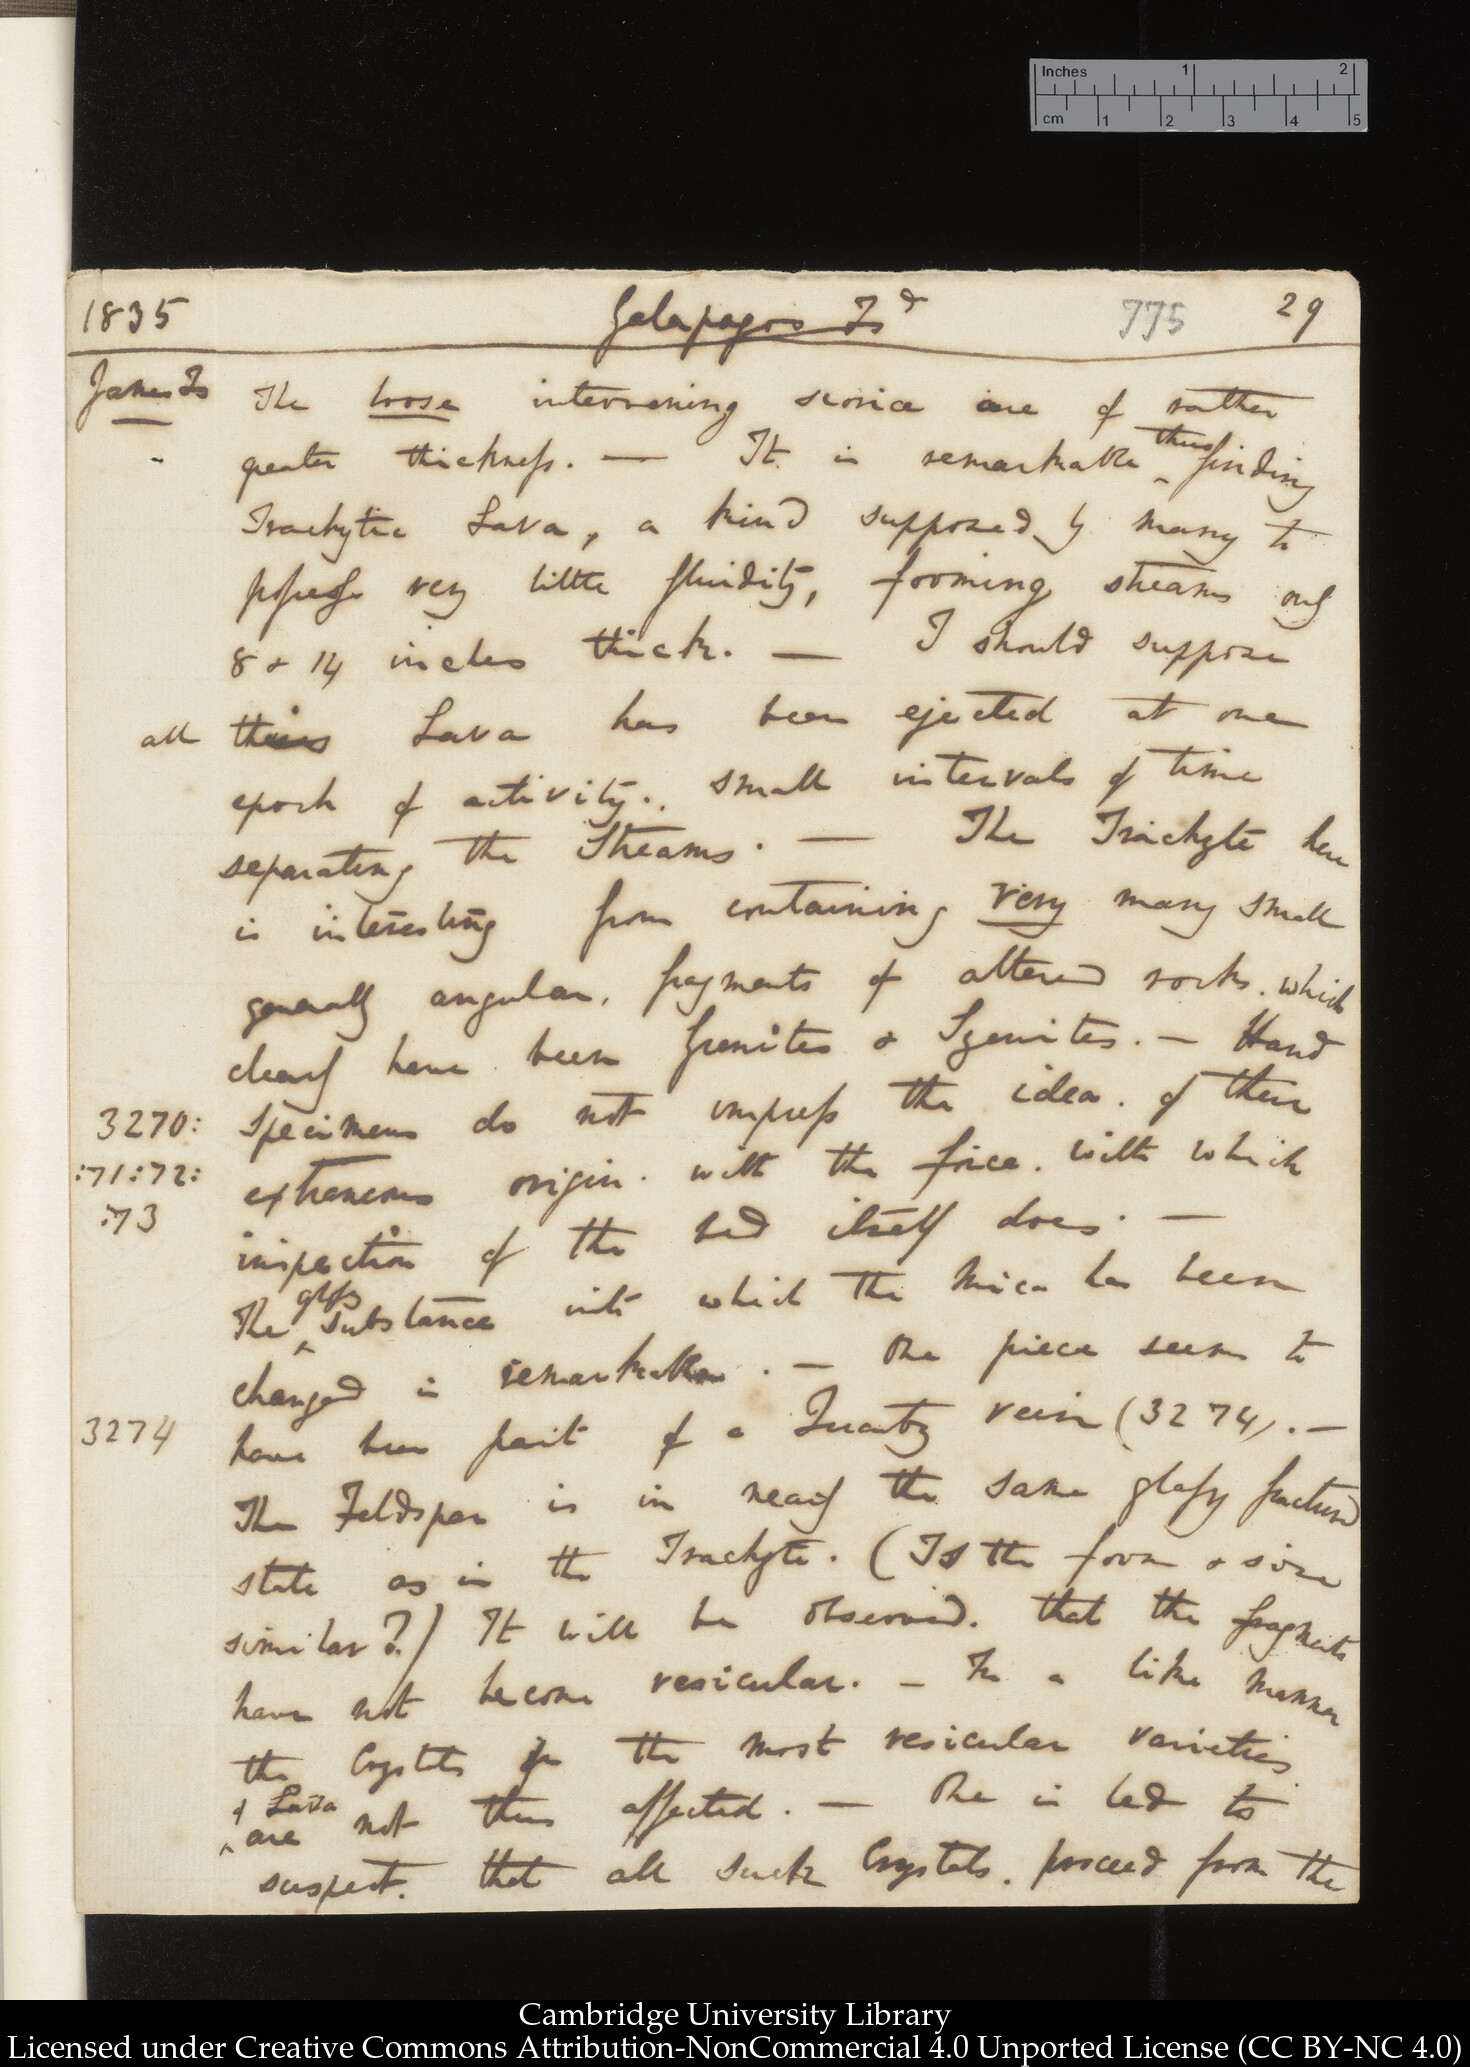 Inches 1 2
cm 1 2 3 4 5
1835 Galapagos Isd 775 29
James Is The loose intervening scoriæ are of rather
greater thickness. — It is remarkable thus finding
Trachytic Lava, a kind supposed by many to
possess very little fluidity, forming streams only
8 & 14 inches thick. — I should suppose
all this Lava has been ejected at one
epoch of activity., small intervals of time
separating the Streams. — The Trachyte here
is interesting from containing very many small
generally angular, fragments of altered rocks. which
clearly have been Granites & Syenites. — Hand
3270: specimens do not impress the idea. of their
:71:72: extraneous origin. with the force. with which
:73 inspection of the bed itself does. —
The glassy substance into which the Mica has been
changed is remarkable. — One piece seems to
3274 have been part of a Quartz vein (3274). —
The Feldspar is in nearly the same glassy fractured
state as in the Trachyte. (Is the form & size
similar?) It will be observed. that the fragments
have not become vesicular. — In a like manner
the Crystals in the most vesicular varieties
of Lava are not thus affected. — One is led to
suspect. that all such Crystals. proceed from the
Cambridge University Library
Licensed under Creative Commons Attribution-NonCommercial 4.0 Unported License (CC BY-NC 4.0)